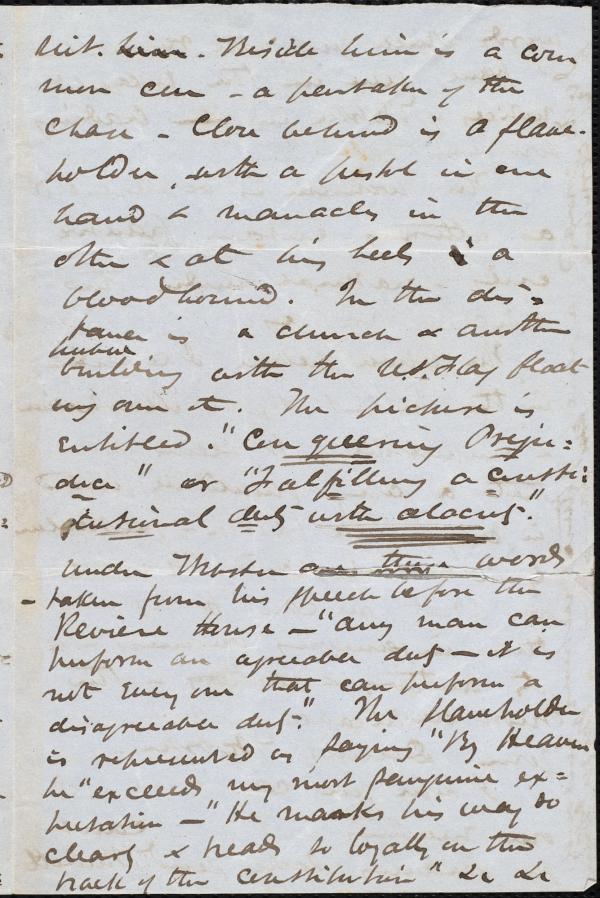 hit. him. Beside him is a com
mon cur - a partaker of the
chase - Close behind is a slave-
holder, with a pistol in one
hand & manacles in the
other & at his heels is a
bloodhound. In the dis=
tance is a church & another
building with the U.S. Flag float
ing over it. The picture is
entitled. "Conquering Preju-
dice" or "Fulfilling a consti:
tutional duty with alacrity."
Under Webster are these words
- taken from his speech before the
Reviere House - "any man can
perform an agreeable duty - it is
not every one that can perform a
disagreeable duty." The slaveholder
is represented as saying "By Heaven
he "exceeds my most sanguine ex=
pectation - "He marks his way so
clearly & treads so loyally in the
track of the constitution" &c &c